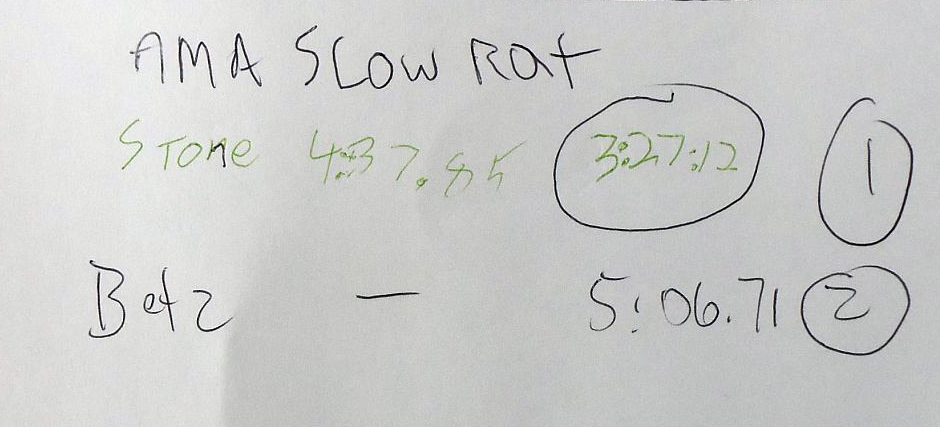 AMA SLOW Rat
STONE 4:37.85 3:27:12 1
Betz — 5:06.71 2